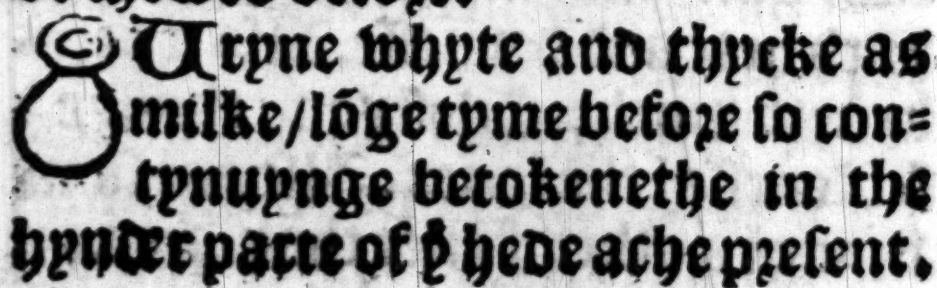 Uryne whyte and thycke as
milke/lõge tyme before ſo con=
tynuynge betokenethe in the
hynder parte of ẙ hede ache preſent.